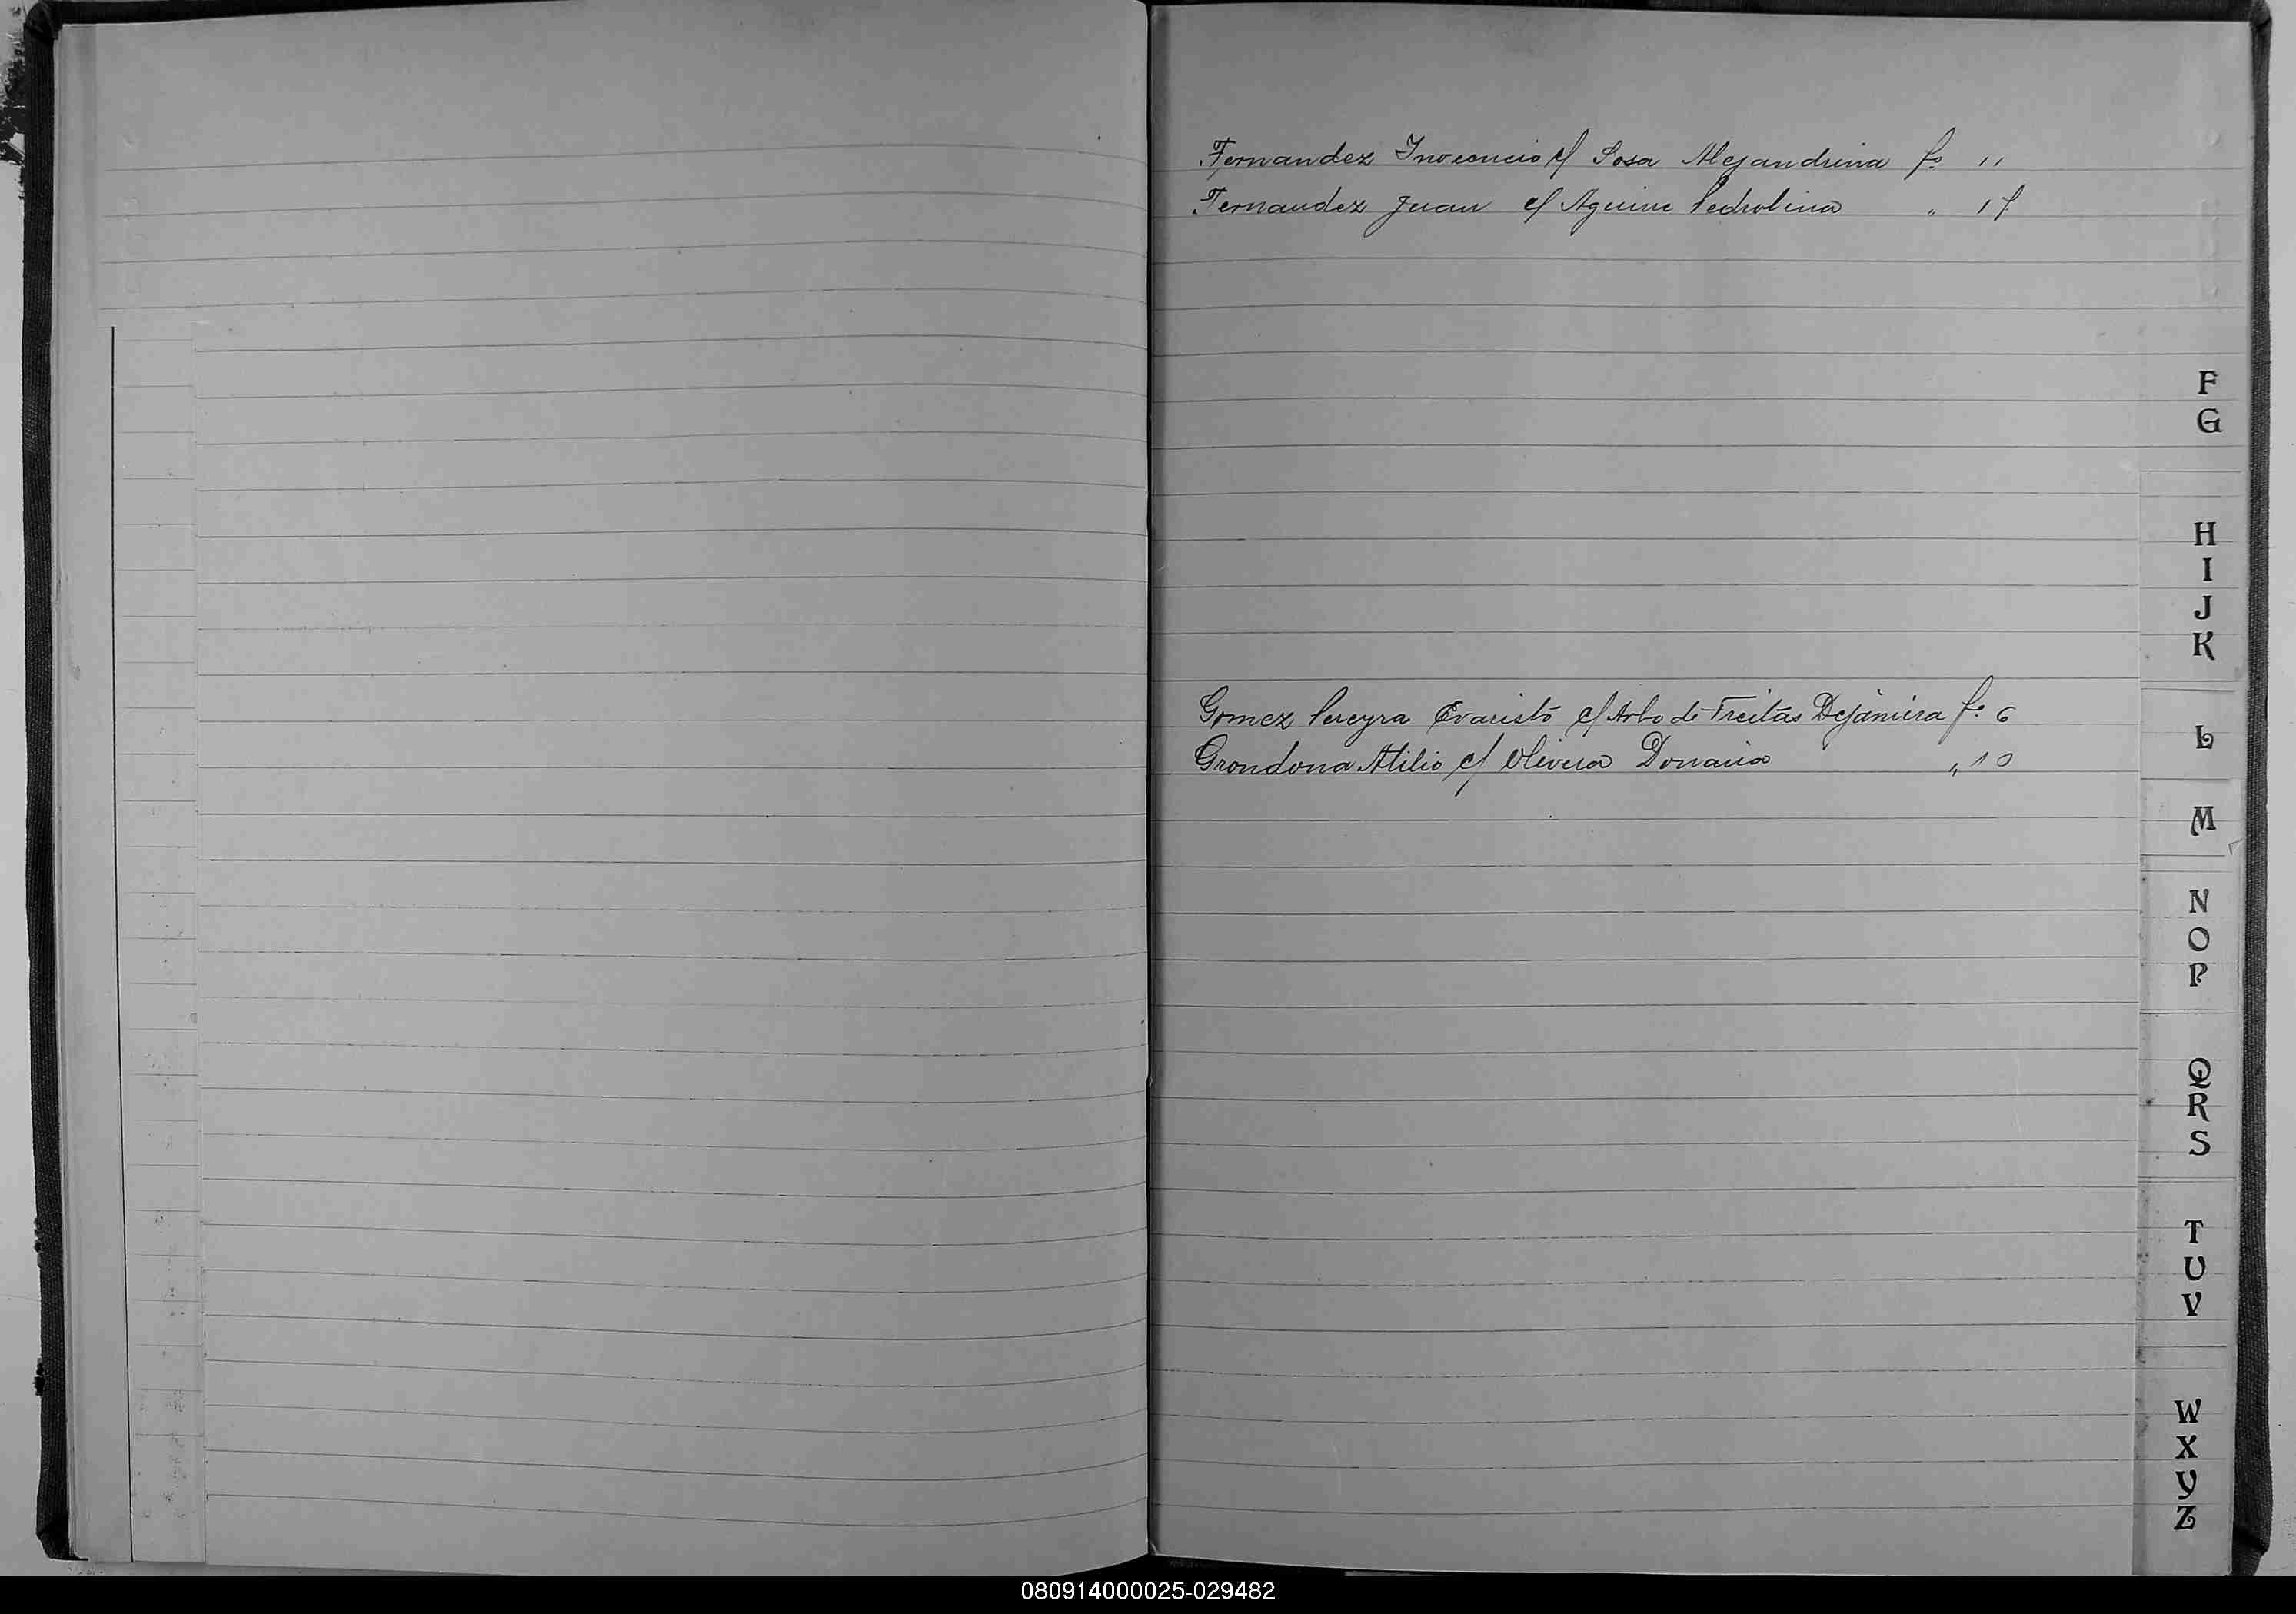 Fernandez Inocencio c/ Sosa Alejandrina fo 11
Fernandez Juan c/ Aguirre Pedrolina " 17
F
G
H
I
J
K
Gomez Pereyra Evaristo c/ Arbo de Freitas Dejanira fo 6
L
Grondona Atilio c/ Olivera Donaria " 10
M
N
O
P
Q
R
S
T
U
V
W
X
Y
Z
080914000025-029482